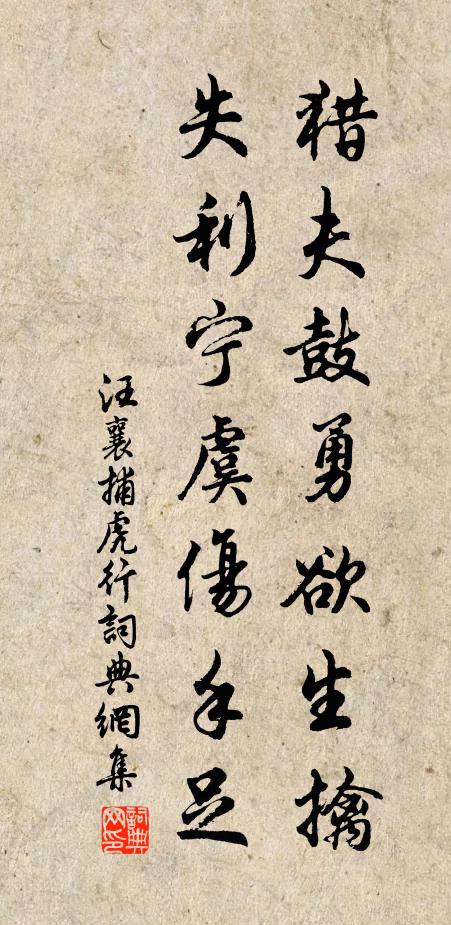 猎夫鼓勇欲生擒
失利宁虞傷手足
汪襄捕虎行詞典網集
詞典网印